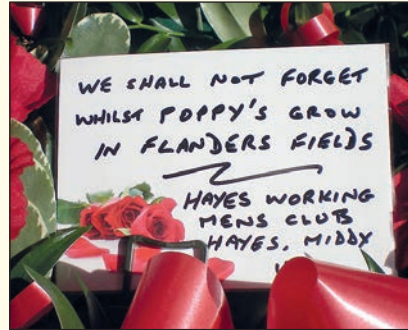 WE SHALL NOT FORGET
WHILST POPPY'S GROW
IN FLANDERS FIELDS
HAYES WORKING
MENS CLUB
HAYES, MIDDX